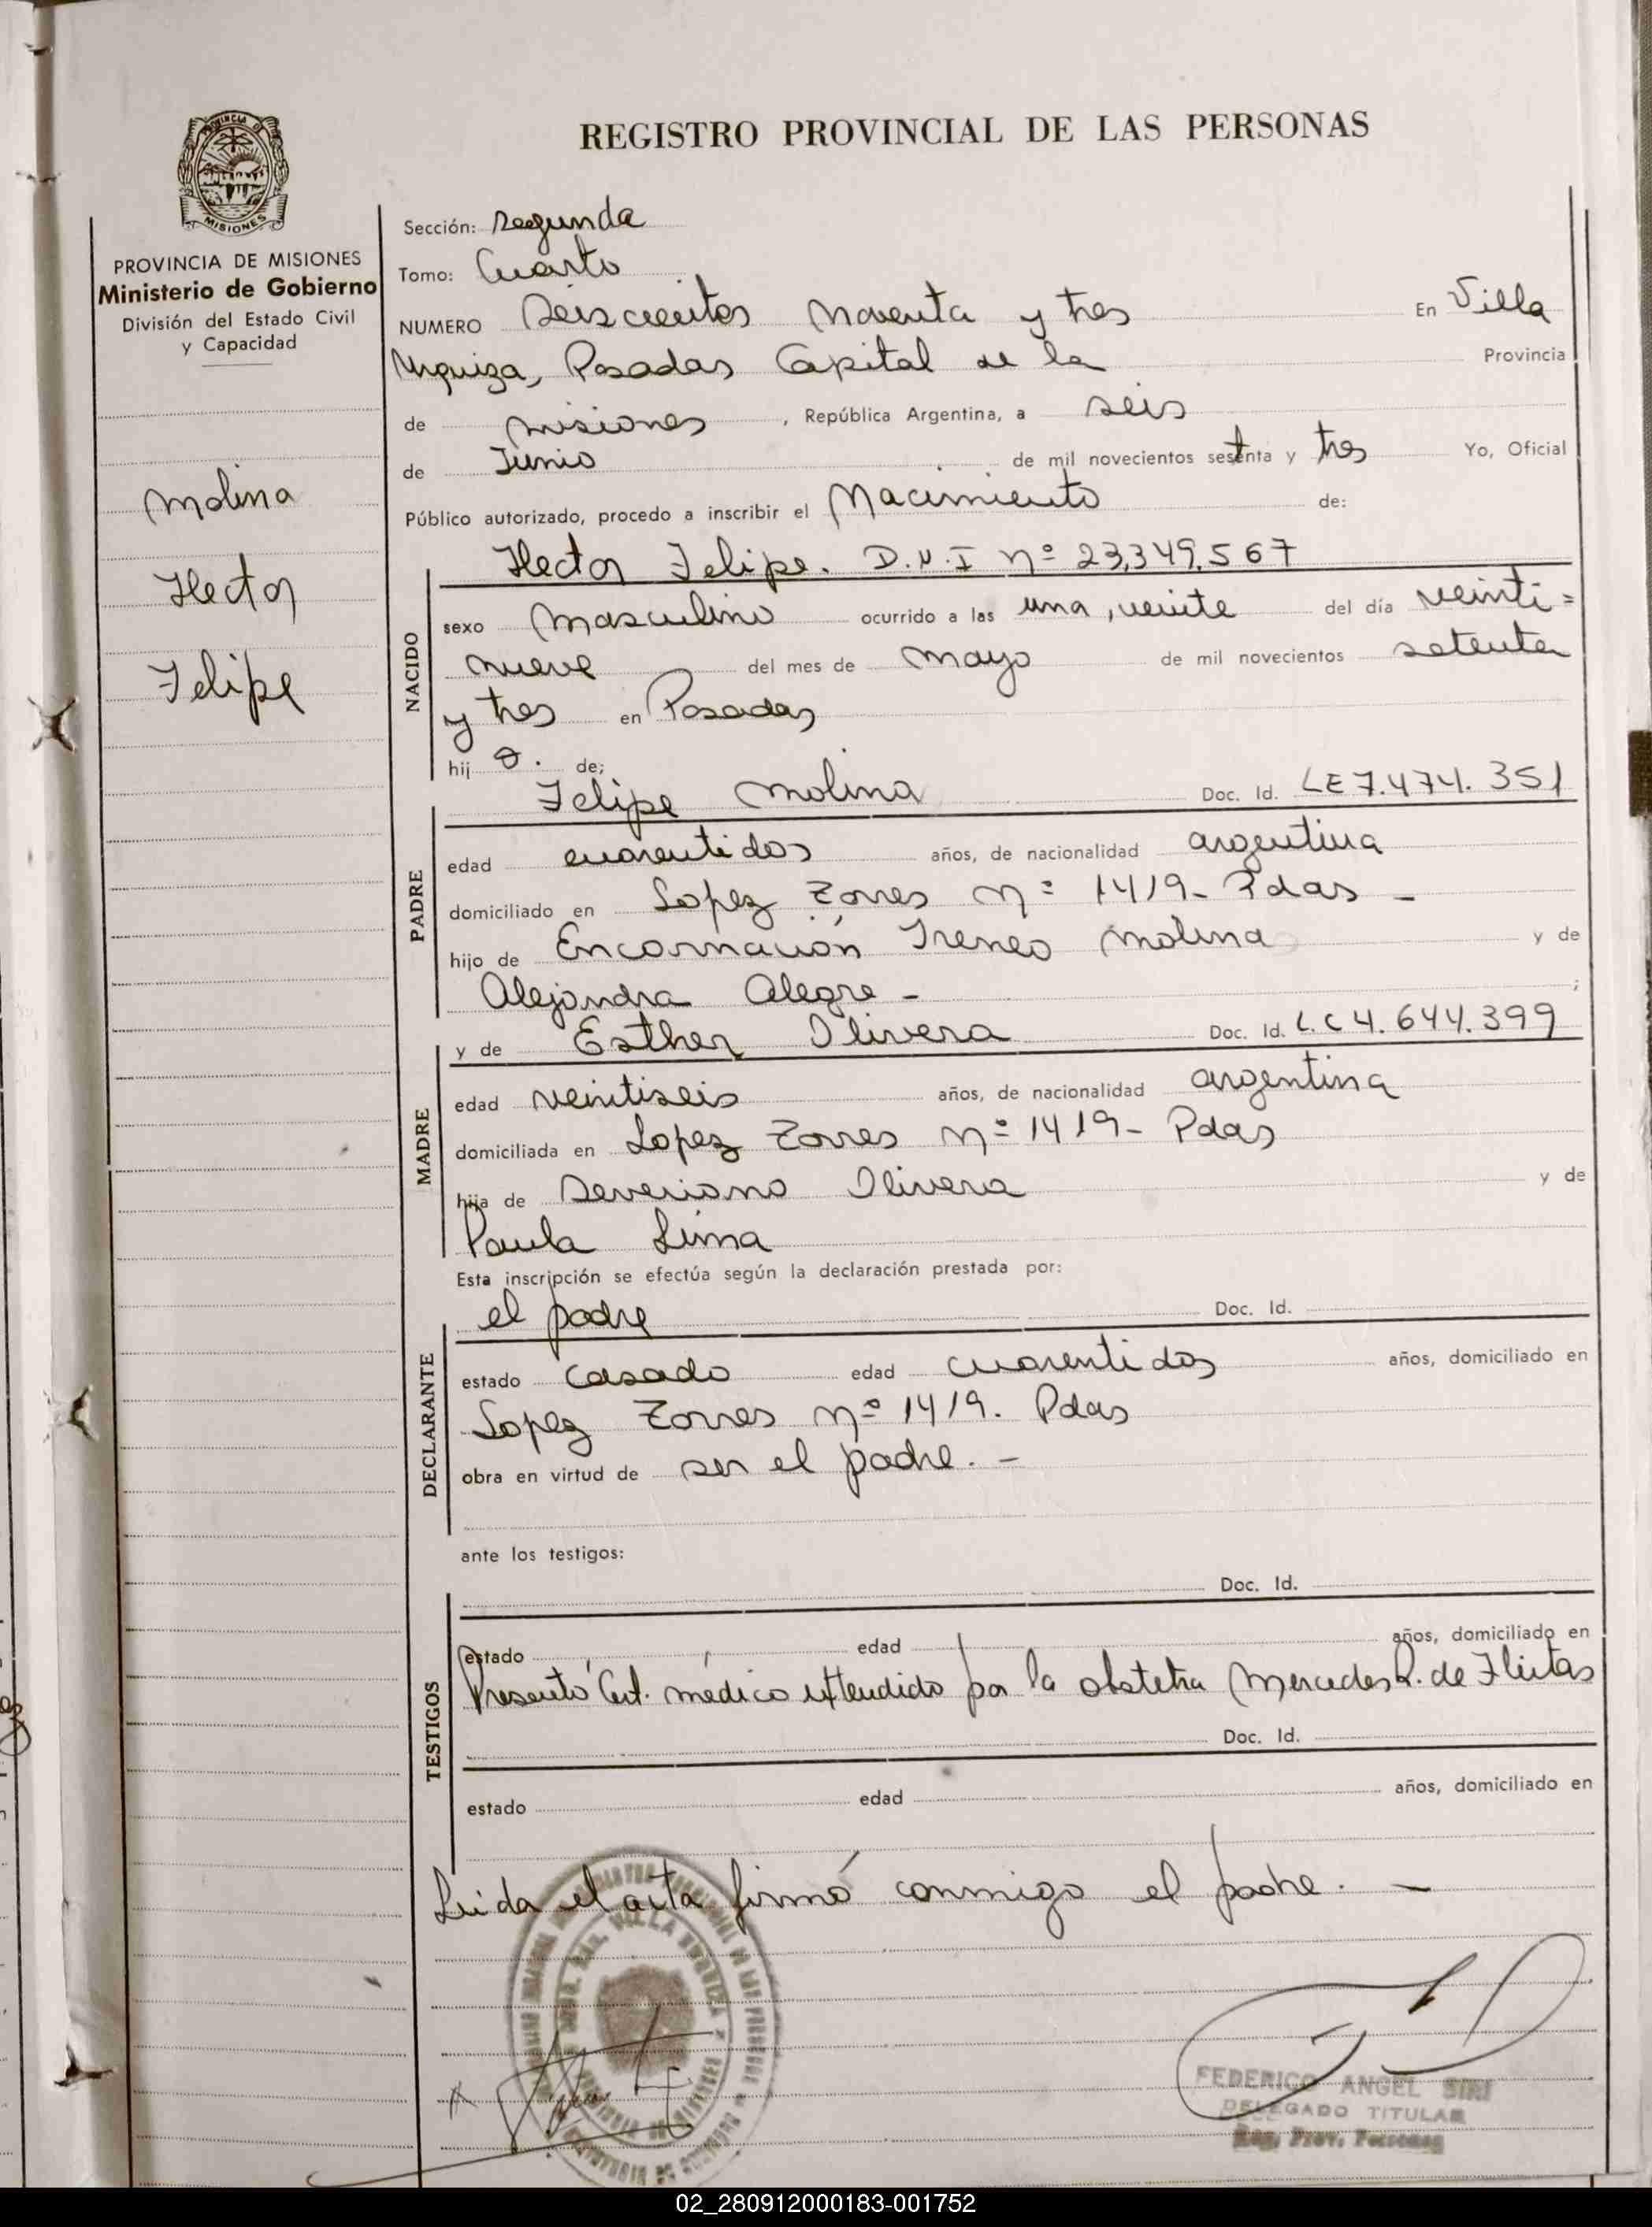 REGISTRO PROVINCIAL DE LAS PERSONAS
PROVINCIA DE
MISIONES
PROVINCIA DE MISIONES
Ministerio de Gobierno
División del Estado Civil
y Capacidad
Molina
Hector
Felipe
Sección: Segunda
Tomo: Cuarto
NUMERO Seiscientos noventa y tres En Villa
Urquiza, Posadas Capital de la Provincia
de Misiones, República Argentina, a seis
de Junio de mil novecientos setenta y tres Yo, Oficial
Público autorizado, procedo a inscribir el Nacimiento de:
Hector Felipe. D.N.I nº 23,349,567
NACIDO
sexo Masculino ocurrido a las una, veinte del día veinti=
nueve del mes de Mayo de mil novecientos setenta
y tres en Posadas
hijo. de;
Felipe Molina Doc. Id. LE 7.474.351
PADRE
edad cuarentidos años, de nacionalidad argentina
domiciliado en Lopez Torres nº 1419- Pdas -
hijo de Encarnación Ireneo Molina y de
Alejandra Alegre - ;
y de Esther Olivera Doc. Id. L.C 4.644.399
MADRE
edad veintiseis años, de nacionalidad argentina
domiciliada en Lopez Torres nº 1419- Pdas
hija de Severiano Olivera y de
Paula Lima
Esta inscripción se efectúa según la declaración prestada por:
el padre Doc. Id.
DECLARANTE
estado casado edad cuarentidos años, domiciliado en
Lopez Torres nº 1419. Pdas
obra en virtud de ser el padre. -
ante los testigos:
Doc. Id.
TESTIGOS
estado edad años, domiciliado en
Presentó Cert. médico extendido por la obstetra Mercedes R. de Fleitas
Doc. Id.
estado edad años, domiciliado en
Leida el acta firmó conmigo el padre. -
FEDERICO ANGEL SIRI
DELEGADO TITULAR
Reg. Prov. Personas
02_280912000183-001752